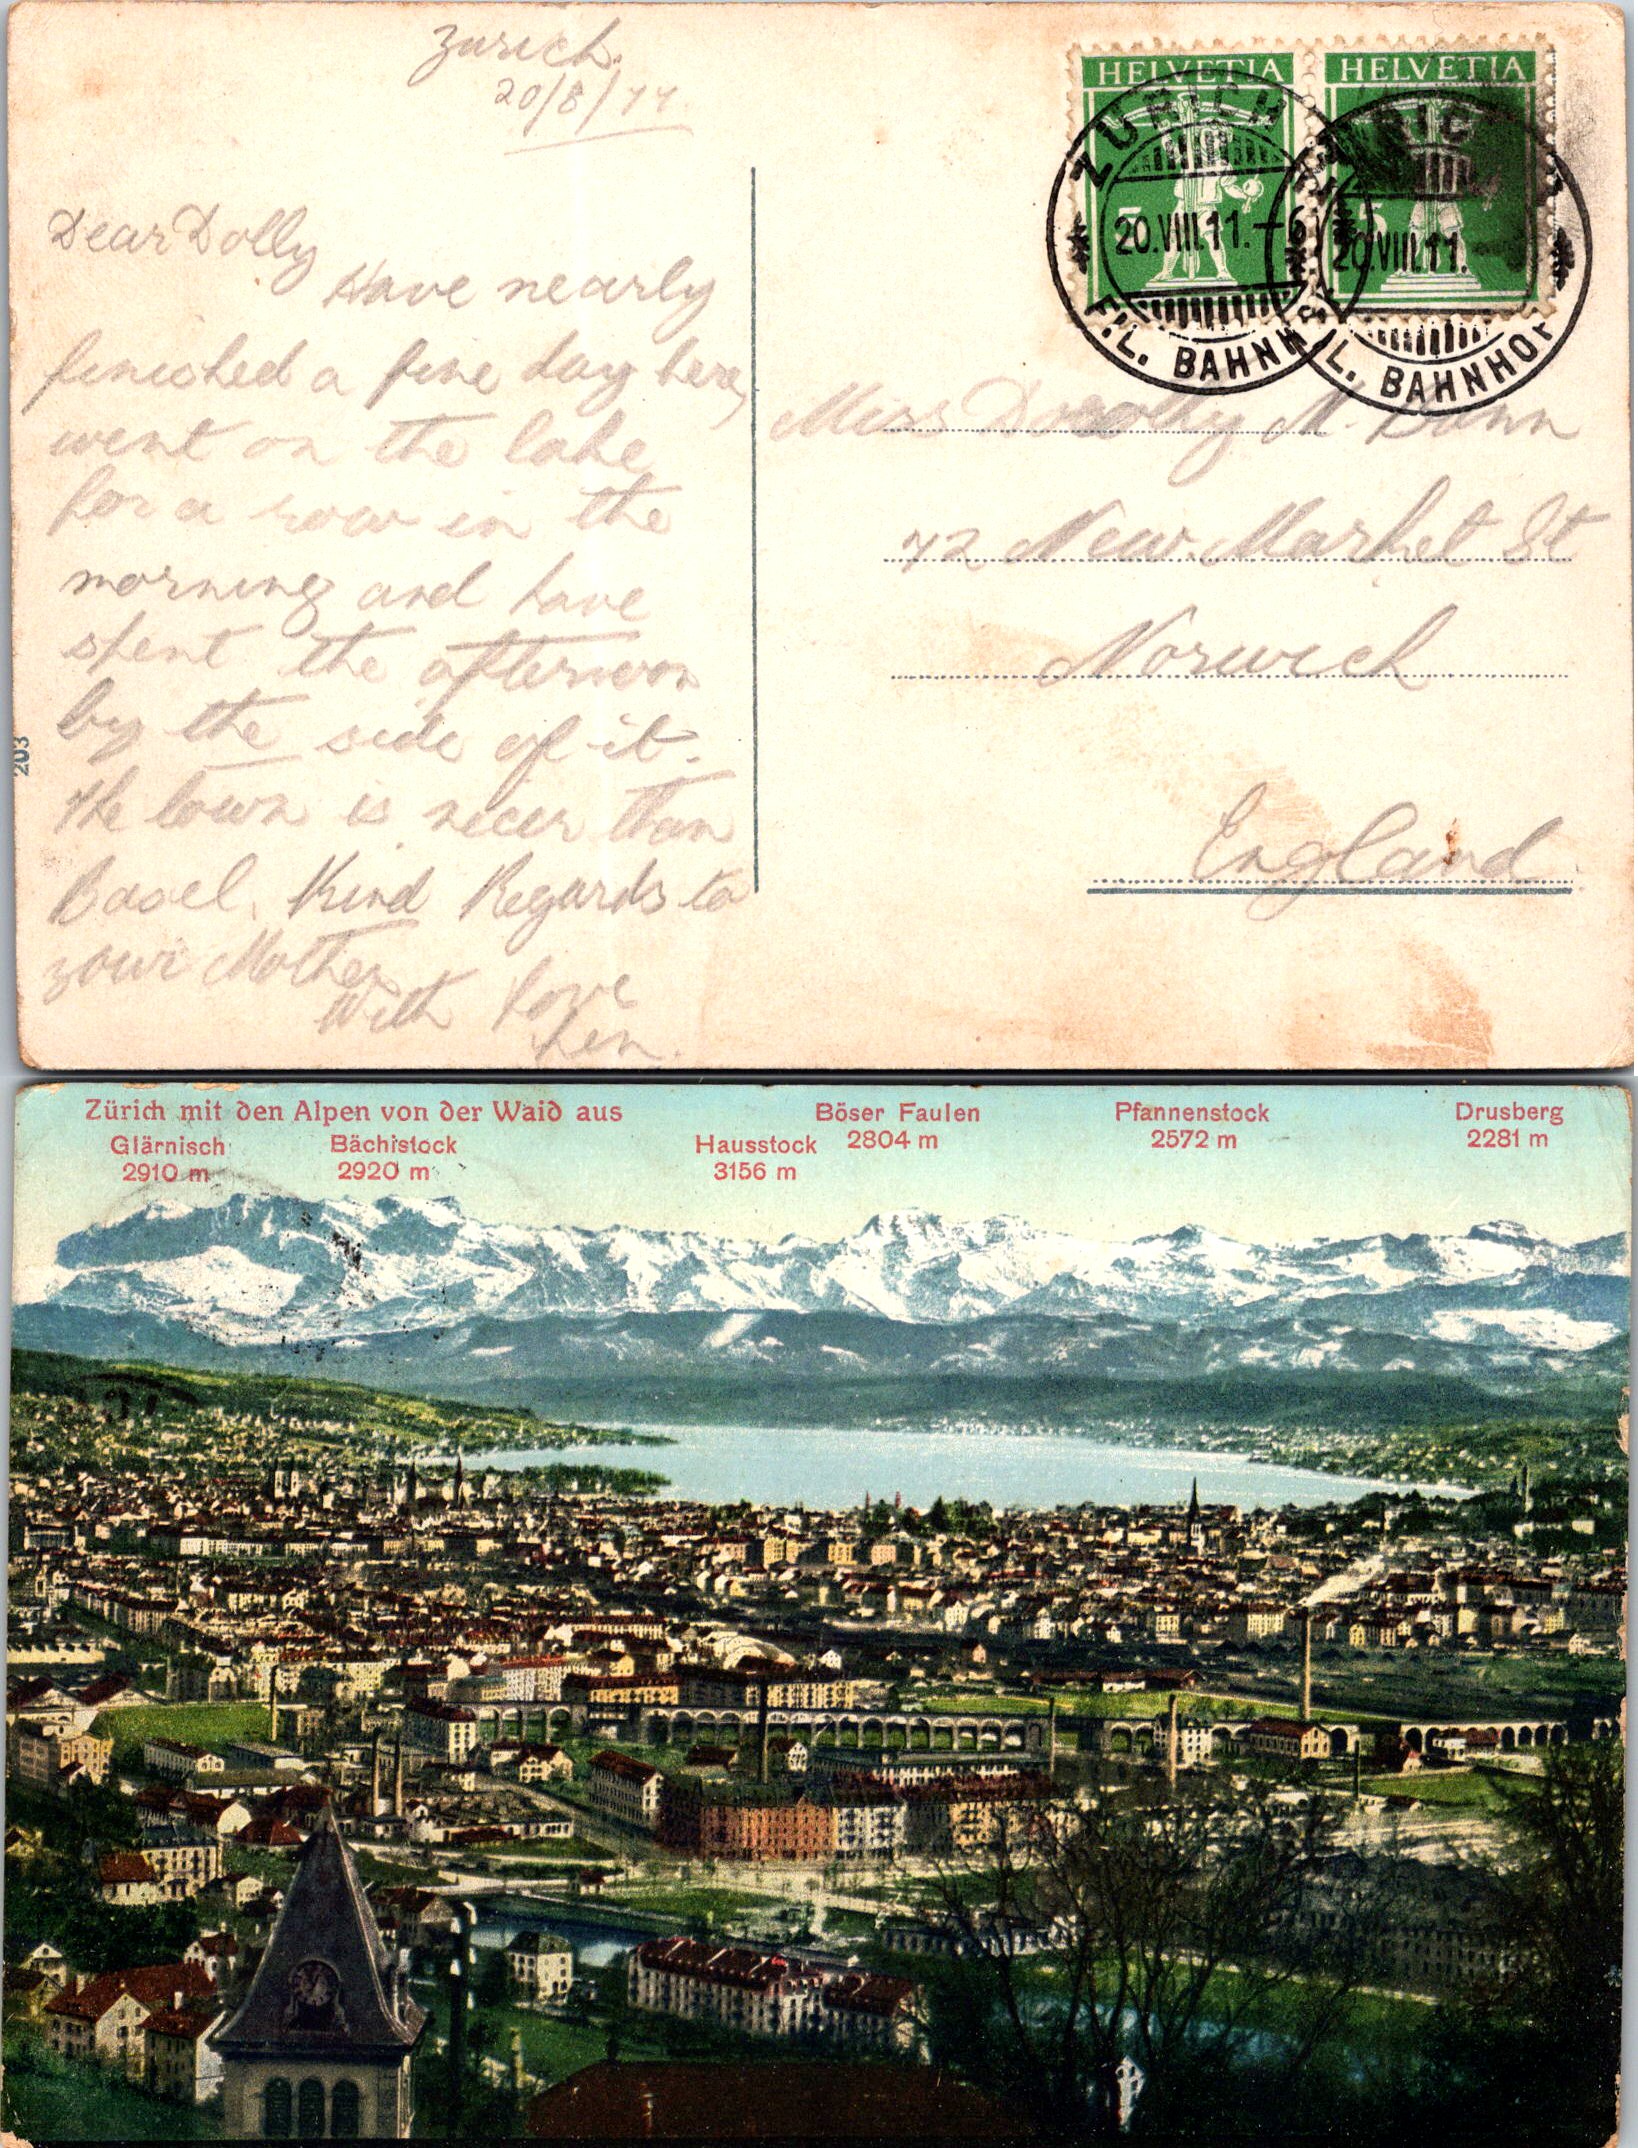 Zurich.
20/8/11
Dear Dolly
Have nearly
finished a fine day here,
went on the lake
for a row in the
morning and have
spent the afternoon
by the side of it.
The town is nicer than
Basel. Kind Regards to
your Mother
With love
Len.
203
HELVETIA
HELVETIA
5
5
ZÜRICH
20.VIII.11.-6
FIL. BAHNHOF
ZÜRICH
20.VIII.11.
FIL. BAHNHOF
Miss Dolly M.
72 New Market St
Norwich
England
Zürich mit den Alpen von der Waid aus
Glärnisch
2910 m
Bächistock
2920 m
Hausstock
3156 m
Böser Faulen
2804 m
Pfannenstock
2572 m
Drusberg
2281 m